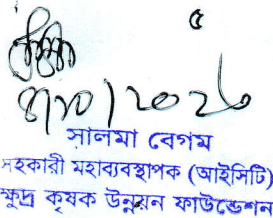 ৫
সালমা বেগম
সহকারী মহাব্যবস্থাপক (আইসিটি)
ক্ষুদ্র কৃষক উন্নয়ন ফাউন্ডেশন